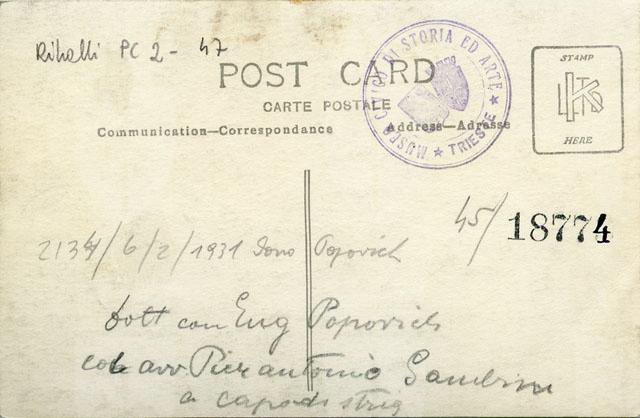 Rihalli PC 2 - 47
POST CARD
CARTE POSTALE
Communication—Correspondance
Address—Adresse
MUSEO CIVICO DI STORIA ED ARTE ★ TRIESTE ★
STAMP
HERE
45/18774
2134/6/2/1931 Dono Popovich
dott cav Eug Popovich
col avv Pier antonio Gambini
a capodistria